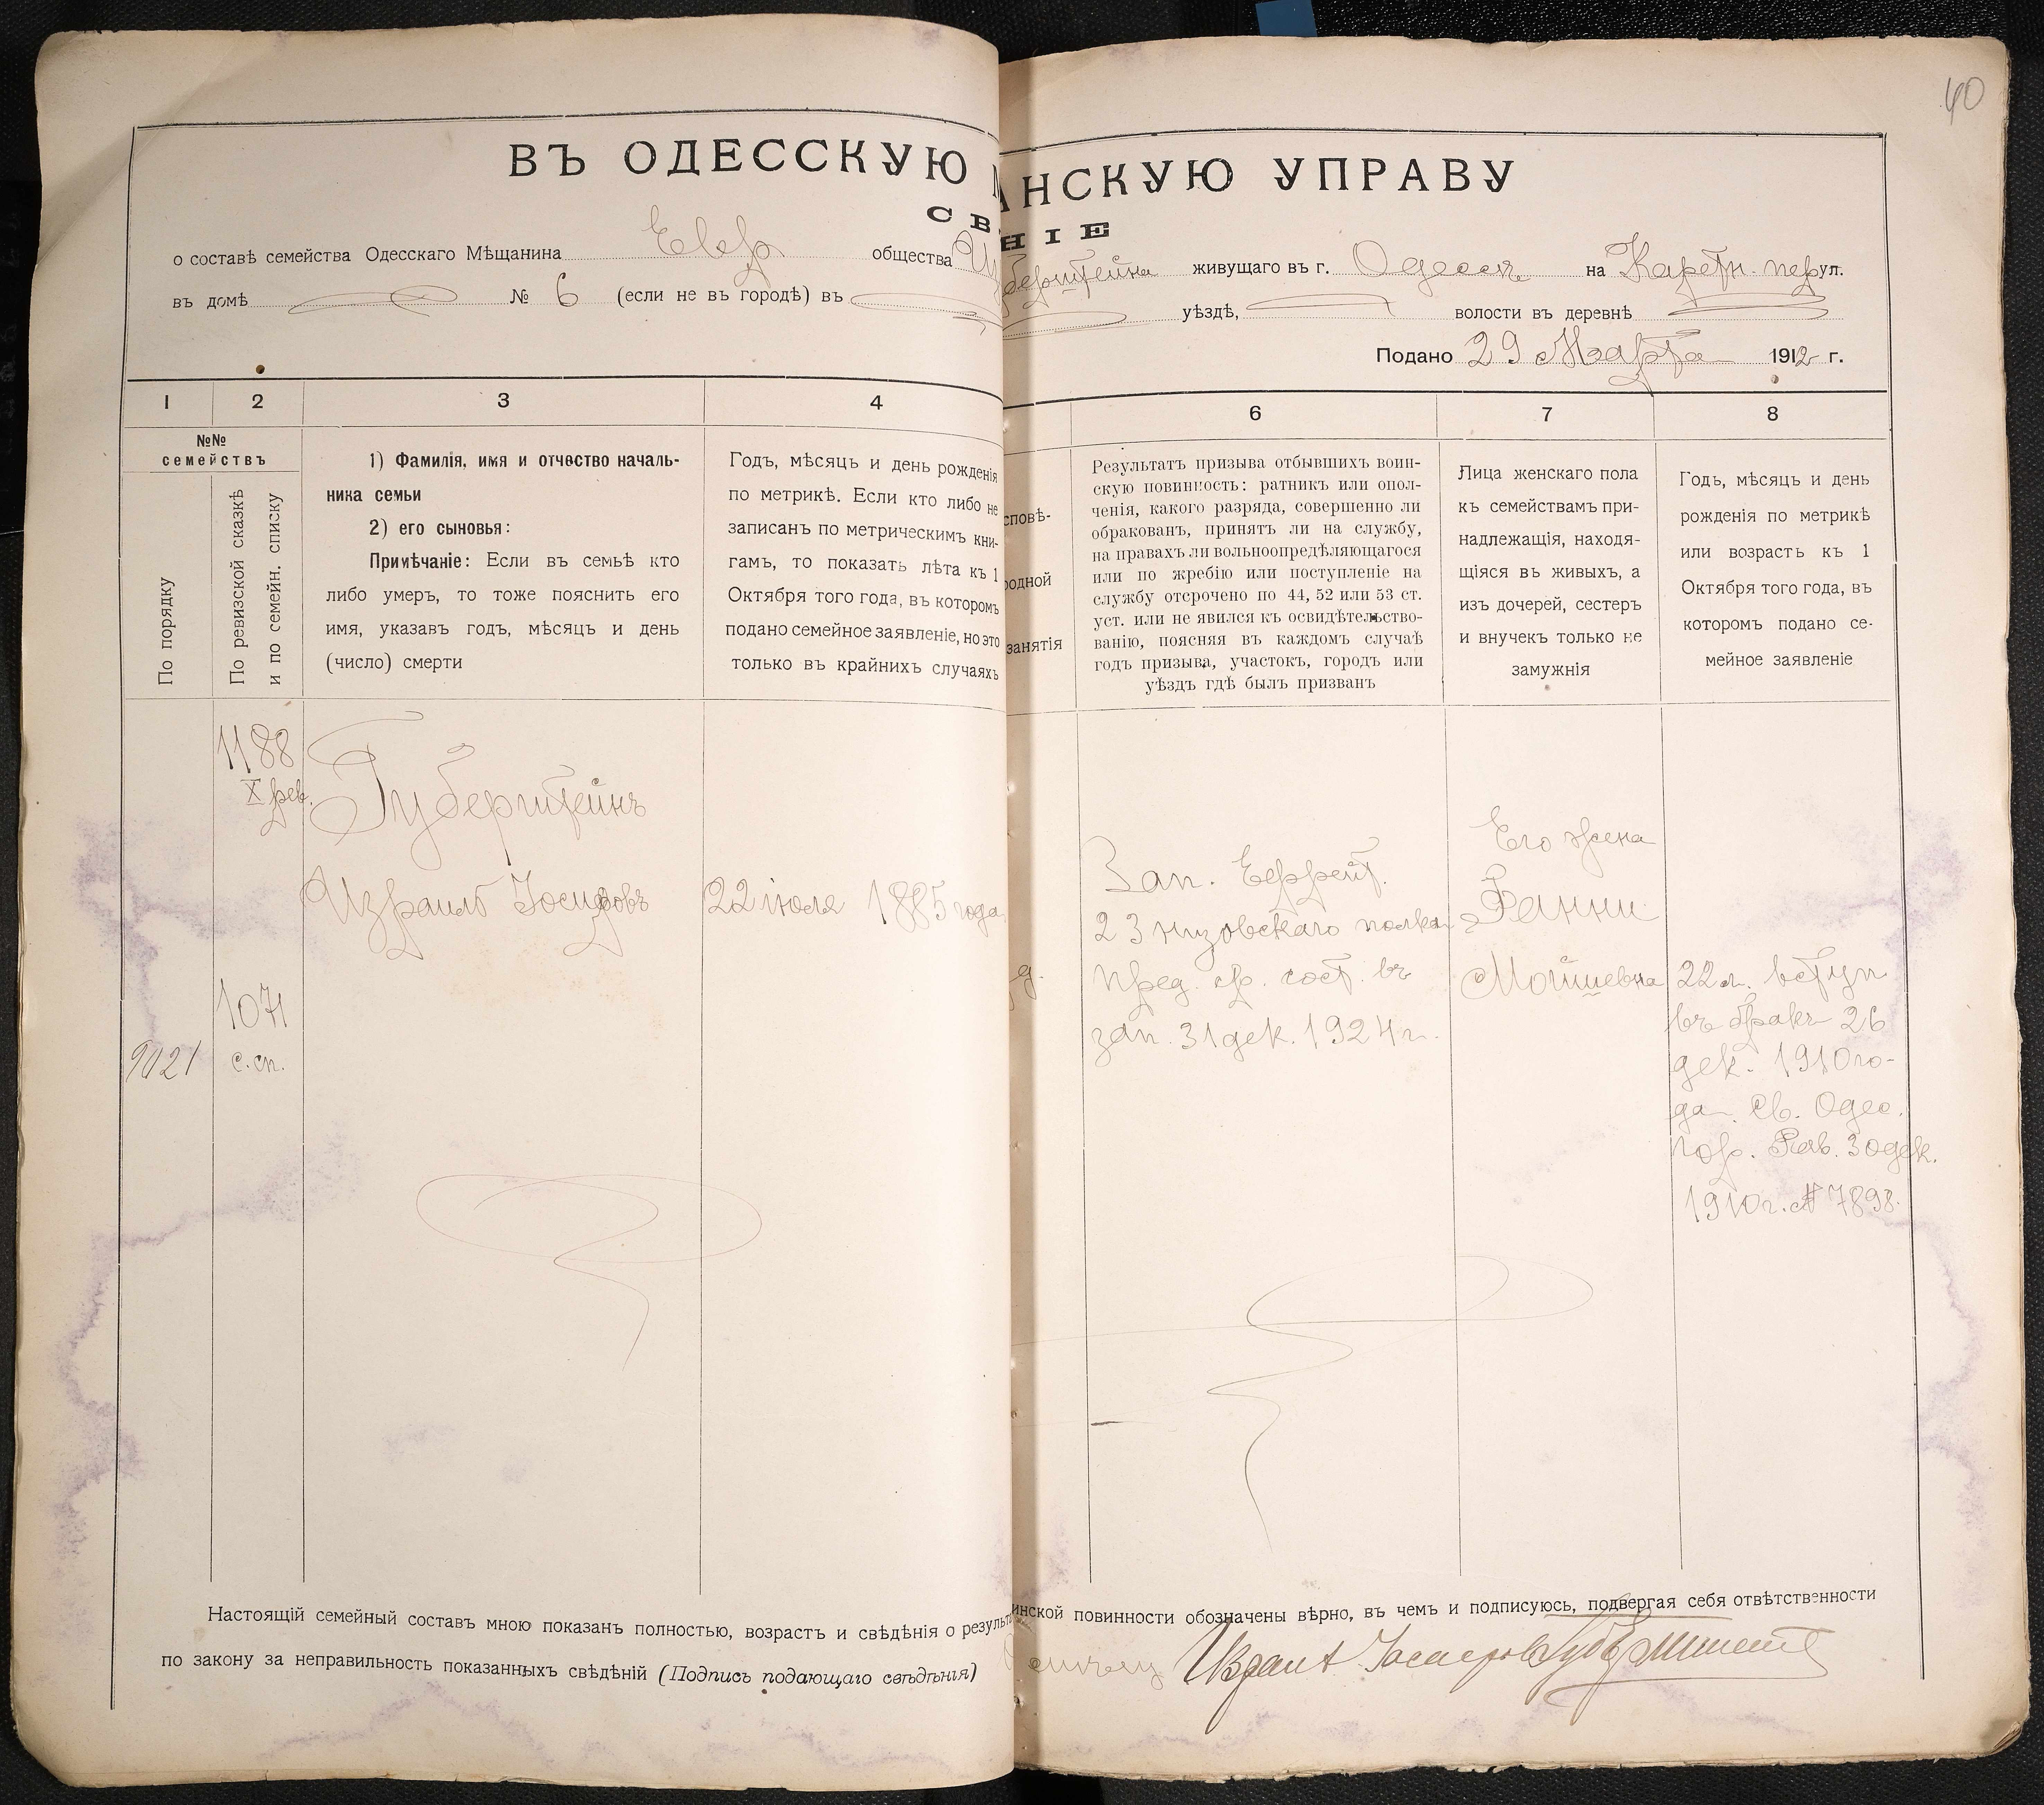 40
ВЪ ОДЕССКУЮ АНСКУЮ УПРАВУ
СВ НІЕ
о составѣ семейства Одесскаго Мѣщанина Евр общества Из Губерштейна живущаго въ г. Одессѣ на Каретн. пер ул.
въ домѣ № 6 (если не въ городѣ) въ уѣздѣ, волости въ деревнѣ
Подано 29 Марта 1912 г.
1 2 3 4 6 7 8
№№
семействъ
По порядку
По ревизской сказкѣ
и по семейн. списку
1) Фамилія, имя и отчество началь-
ника семьи
2) его сыновья:
Примѣчаніе: Если въ семьѣ кто
либо умеръ, то тоже пояснить его
имя, указавъ годъ, мѣсяцъ и день
(число) смерти
Годъ, мѣсяцъ и день рожденія
по метрикѣ. Если кто либо не
записанъ по метрическимъ кни-
гамъ, то показать лѣта къ 1
Октября того года, въ которомъ
подано семейное заявленіе, но это
только въ крайнихъ случаяхъ
сповѣ-
родной
занятія
Результатъ призыва отбывшихъ воин-
скую повинность: ратникъ или опол-
ченія, какого разряда, совершенно ли
обракованъ, принятъ ли на службу,
на правахъ ли вольноопредѣляющагося
или по жребію или поступленіе на
службу отсрочено по 44, 52 или 53 ст.
уст. или не явился къ освидѣтельство-
ванію, поясняя въ каждомъ случаѣ
годъ призыва, участокъ, городъ или
уѣздъ гдѣ былъ призванъ
Лица женскаго пола
къ семействамъ при-
надлежащія, находя-
щіяся въ живыхъ, а
изъ дочерей, сестеръ
и внучекъ только не
замужнія
Годъ, мѣсяцъ и день
рожденія по метрикѣ
или возрастъ къ 1
Октября того года, въ
которомъ подано се-
мейное заявленіе
1188
X рев.
Губерштейнъ
Израиль Іосифовъ
22 іюля 1885 года
1071
с. сп.
9021
д.
Зап. Ефрейт.
23 низовскаго полка
пред. ср. сост. въ
зап. 31 дек. 1924 г.
Его жена
Фанни
Мойшевна
22 л. вступ
въ бракъ 26
дек. 1910 го-
да Св. Одес.
гор. Рав. 30 дек.
1910 г. № 7898.
Настоящій семейный составъ мною показанъ полностью, возрастъ и свѣдѣнія о результ инской повинности обозначены вѣрно, въ чемъ и подписуюсь, подвергая себя отвѣтственности
по закону за неправильность показанныхъ свѣдѣній (Подпись подающаго свѣдѣнія)